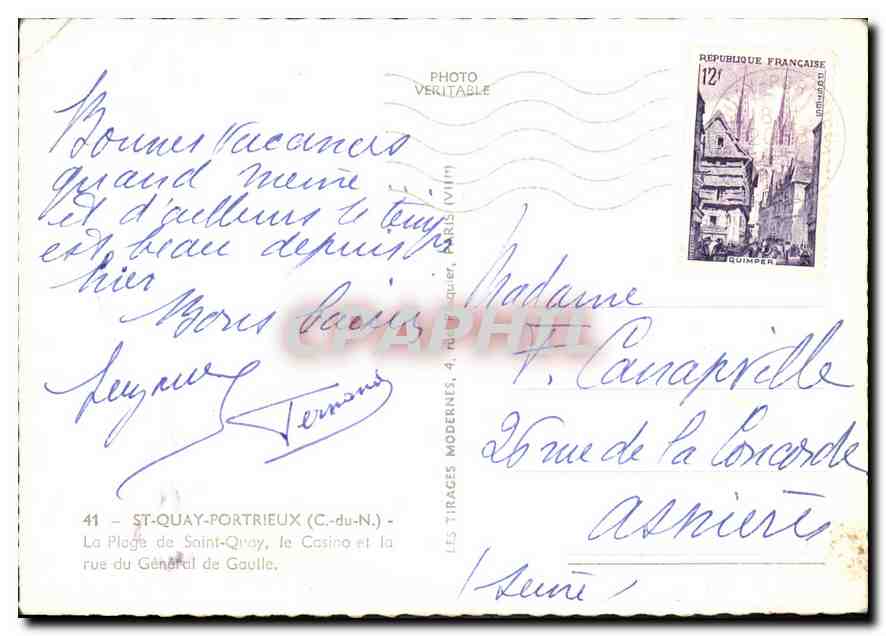 PHOTO
VERITABLE
RÉPUBLIQUE FRANÇAISE
12F
POSTES
QUIMPER
Bonnes Vacances
quand même ..
et d'ailleurs le temps
est beau depuis
hier
Bons baisers
Suzanne
Fernand
Madame
F. Canapville
26 rue de la Concorde
Asnières
(Seine)
CPAPHIL
LES TIRAGES MODERNES, 4, rue quier, PARIS (VIIIe)
41 - ST-QUAY-PORTRIEUX (C.-du-N.) -
La Plage de Saint-Quay, le Casino et la
rue du Général de Gaulle.